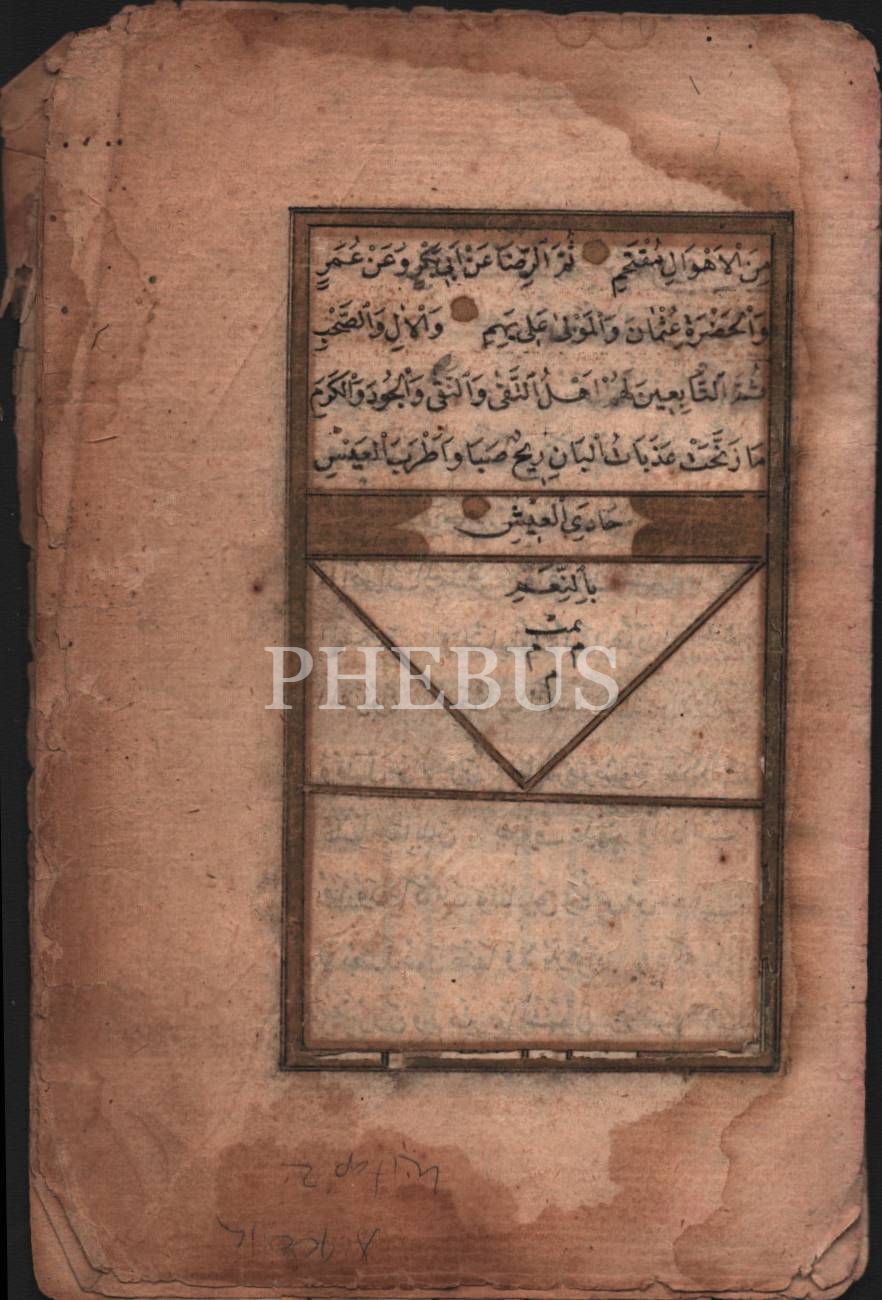 مِنَ ٱلْاَهْوَالِ مُقْتَحِمِ ثُمَّ ٱلرِّضَا عَنْ اَبِي بَكْرٍ وَعَنْ عُمَرٍ
وَٱلْحَضْرَةِ عُثْمَانَ وَٱلْمَوْلٰى عَلِي بَهِيمِ وَٱلْاٰلِ وَٱلصَّحْبِ
ثُمَّ ٱلتَّابِعِينَ لَهُمْ اَهْلُ ٱلتُّقٰى وَٱلنَّقٰى وَٱلْجُودِ وَٱلْكَرَمَ
مَا رَنَّحَتْ عَذَبَاتُ ٱلْبَانِ رِيحُ صَبَا وَاَطْرَبَ ٱلْعِيسِ
حَادِيَ ٱلْعِيْشِ
بِٱلنِّعَمِ
تمت
م م
م
PHEBUS
kitap 2